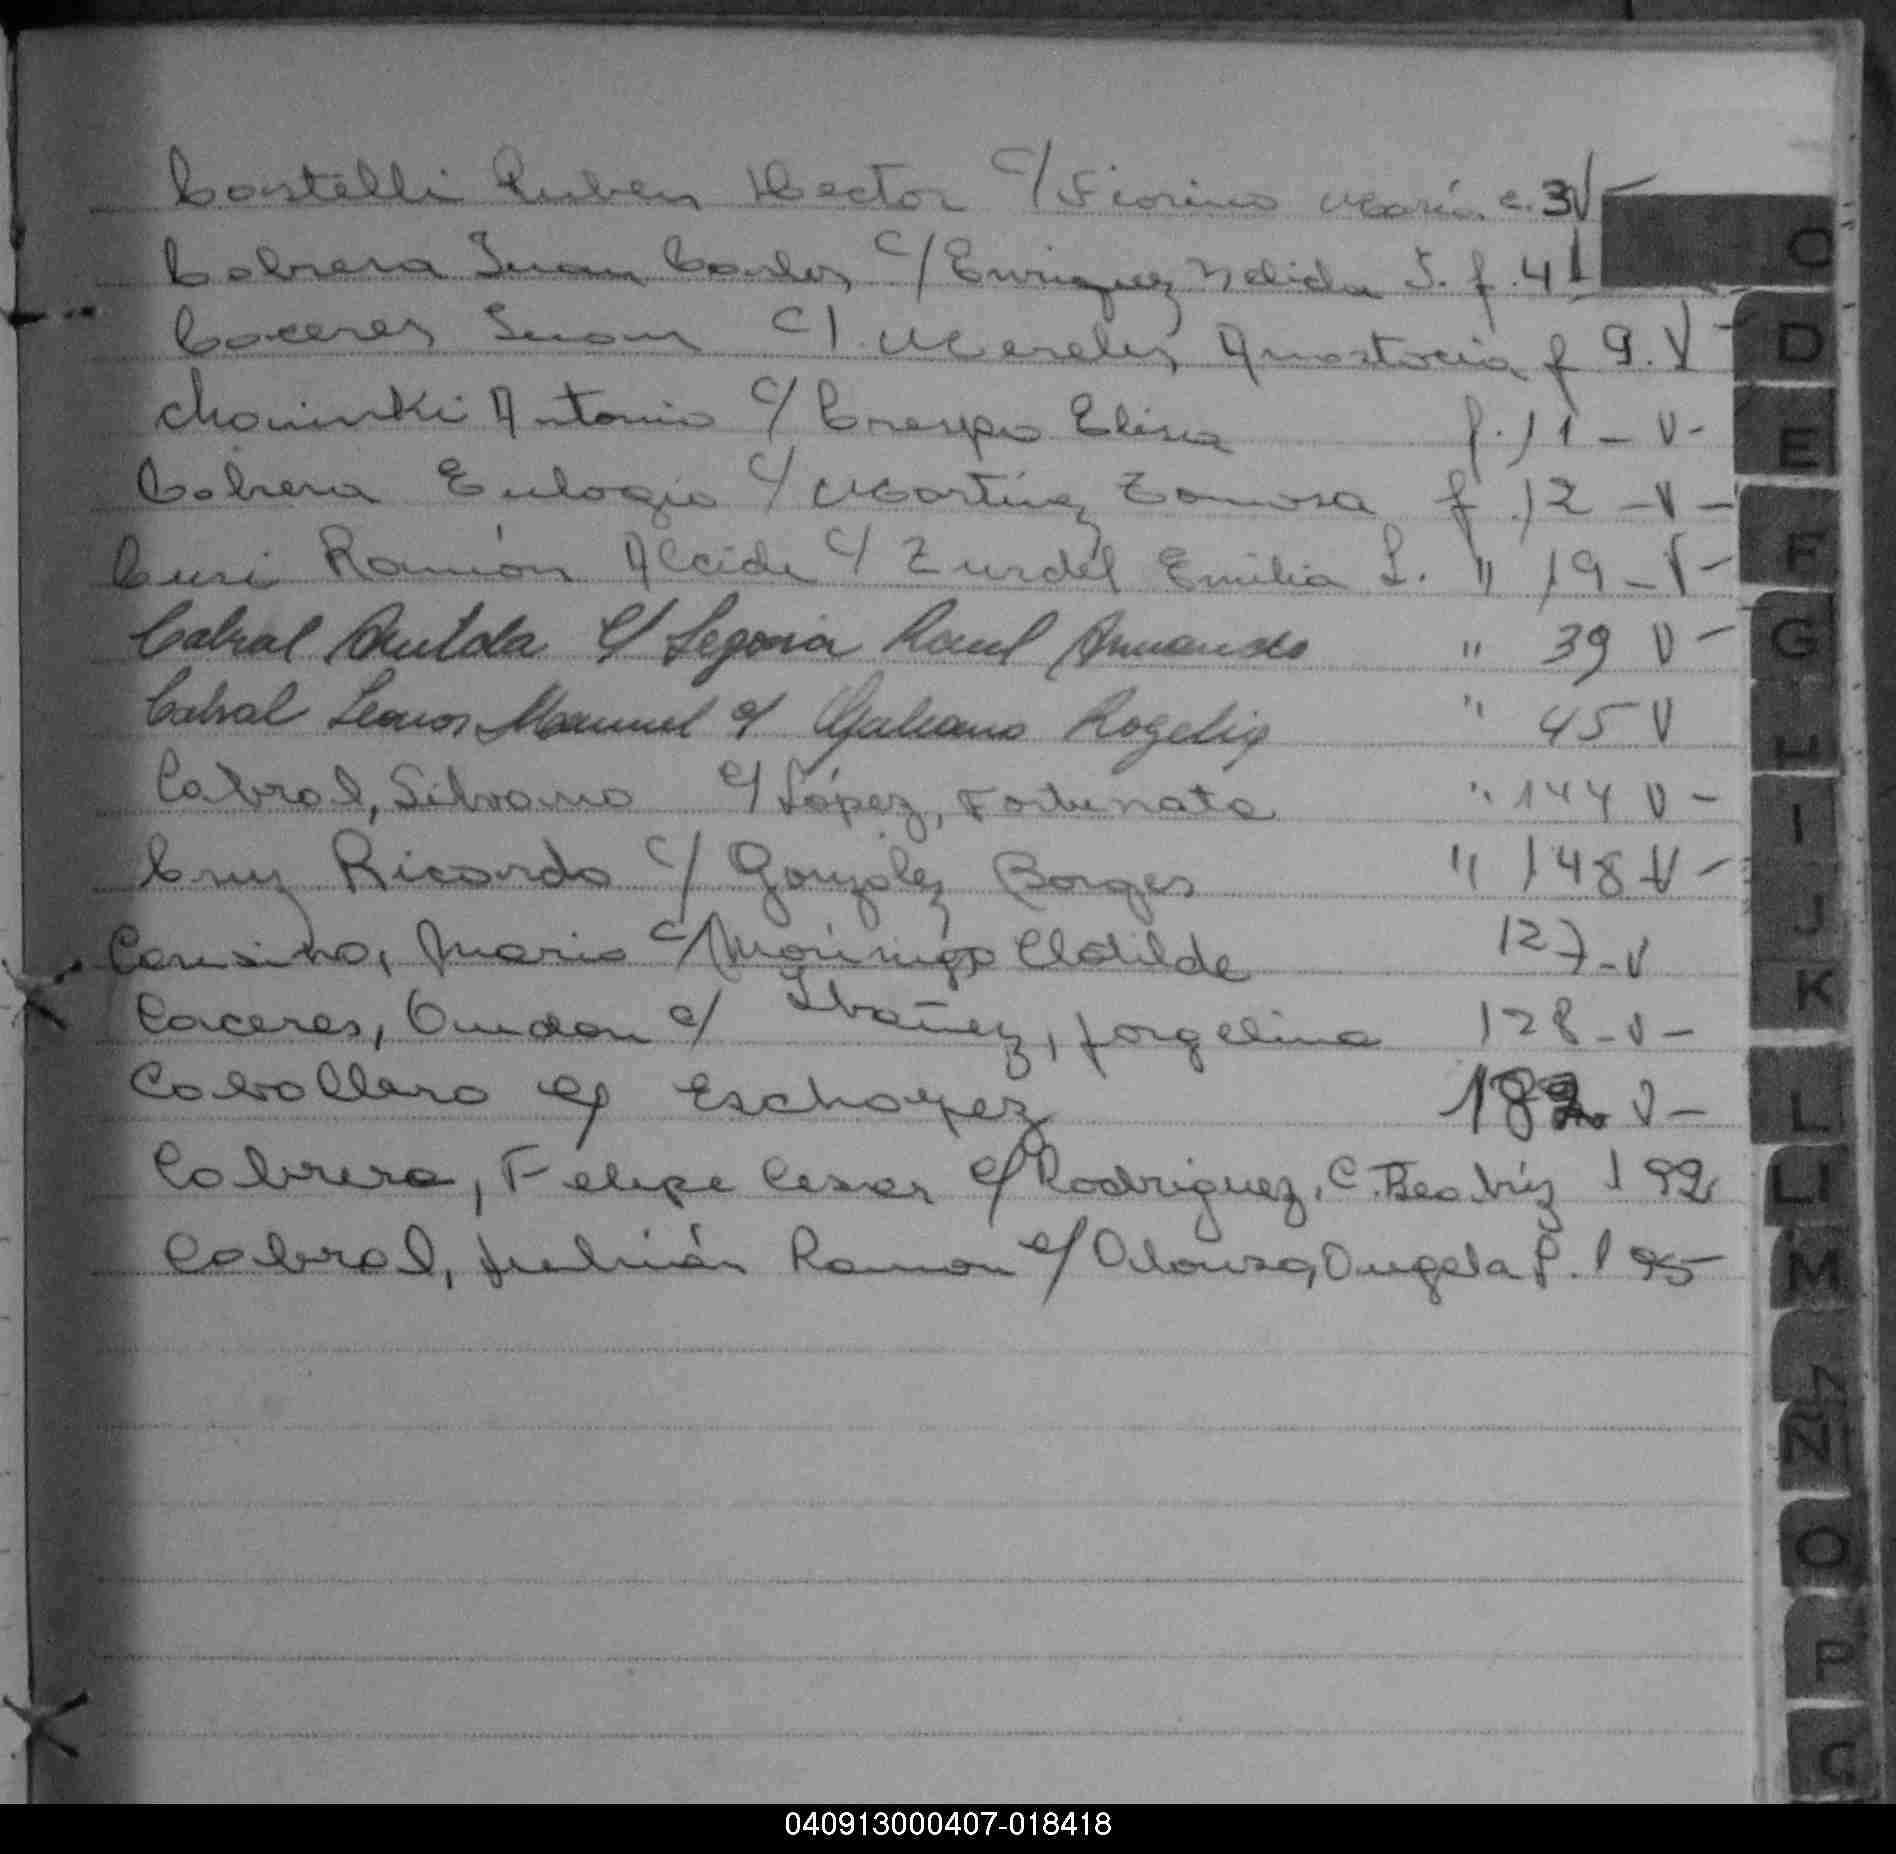 Castelli Ruben Hector c/ Fiorino María e. 3 V -
Cabrera Juan Carlos c/ Enriquez Nelida J. f. 4
Caceres Juan c/. Mereles Anastacia f 9. V -
Antonio c/ Crespo Elisa f. 11 - V -
Cabrera Eulogio c/ Martínez f. 12 - V -
Curi Ramón Alcide c/ Zurdel Emilia L. " 19 - V -
Cabral c/ Segovia Raul Armando " 39 V -
Cabral Manuel c/ Galeano Rogelia " 45 V
Cabral, Silvano c/ López, Fortunata " 144 V -
Cruz Ricardo c/ González Borges " 148 V -
Cansino, Mario c/ Morinigo Clotilde 127 - V
Caceres, c/ Ibañez, Jorgelina 128 - V -
Caballero c/ Eschoyez V -
Cabrera, Felipe Cesar c/ Rodriguez, C. Beatríz 192
Cabral, Julián Ramon c/ Alonso, Angela P. 195
C
D
E
F
G
H
I
J
K
L
LL
M
N
Ñ
O
P
040913000407-018418